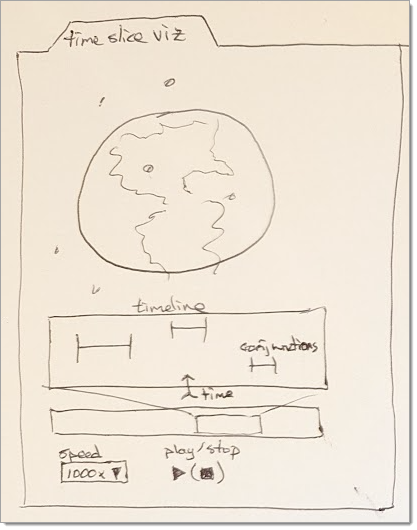 time slice viz
timeline
conjunctions
time
speed
play/stop
1000x